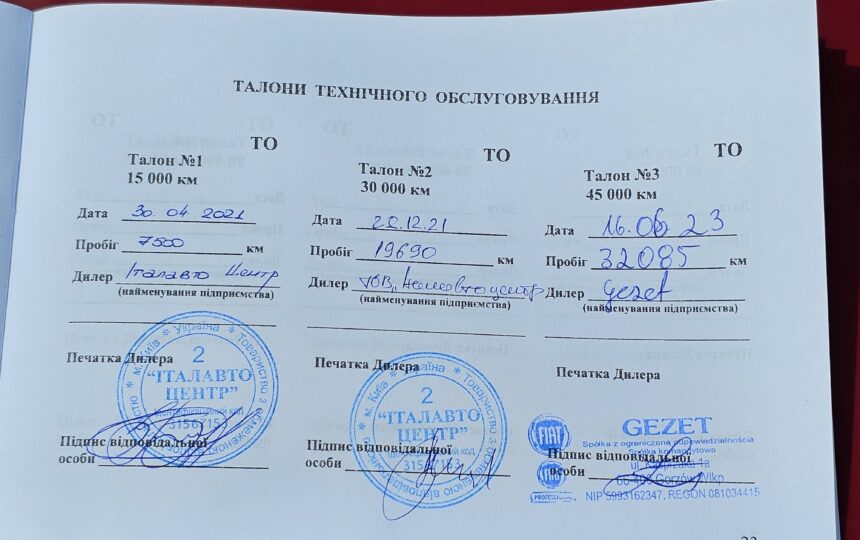 ТАЛОНИ ТЕХНІЧНОГО ОБСЛУГОВУВАННЯ
ТО
Талон №1
15 000 км
Дата 30.04 2021
Пробіг 7500 км
Дилер Італавто Центр
(найменування підприємства)
Печатка Дилера
* Україна * Товариство з обмеженою відповідальністю * м. Київ
2
"ІТАЛАВТО
ЦЕНТР"
Підпис відповідальної
особи
ТО
Талон №2
30 000 км
Дата 20.12.21
Пробіг 19690 км
Дилер ТОВ
(найменування підприємства)
Печатка Дилера
* Україна * Товариство з обмеженою відповідальністю * м. Київ
2
"ІТАЛАВТО
ЦЕНТР"
код
Підпис відповідальної
особи
ТО
Талон №3
45 000 км
Дата 16.06 23
Пробіг 32085 км
Дилер Gezet
(найменування підприємства)
Печатка Дилера
FIAT
FIAT
PROFESSIONAL
GEZET
Spółka z ograniczoną odpowiedzialnością
Spółka komandytowa
Gorzów Wlkp
NIP 5993162347, REGON 081034415
Підпис відповідальної
особи